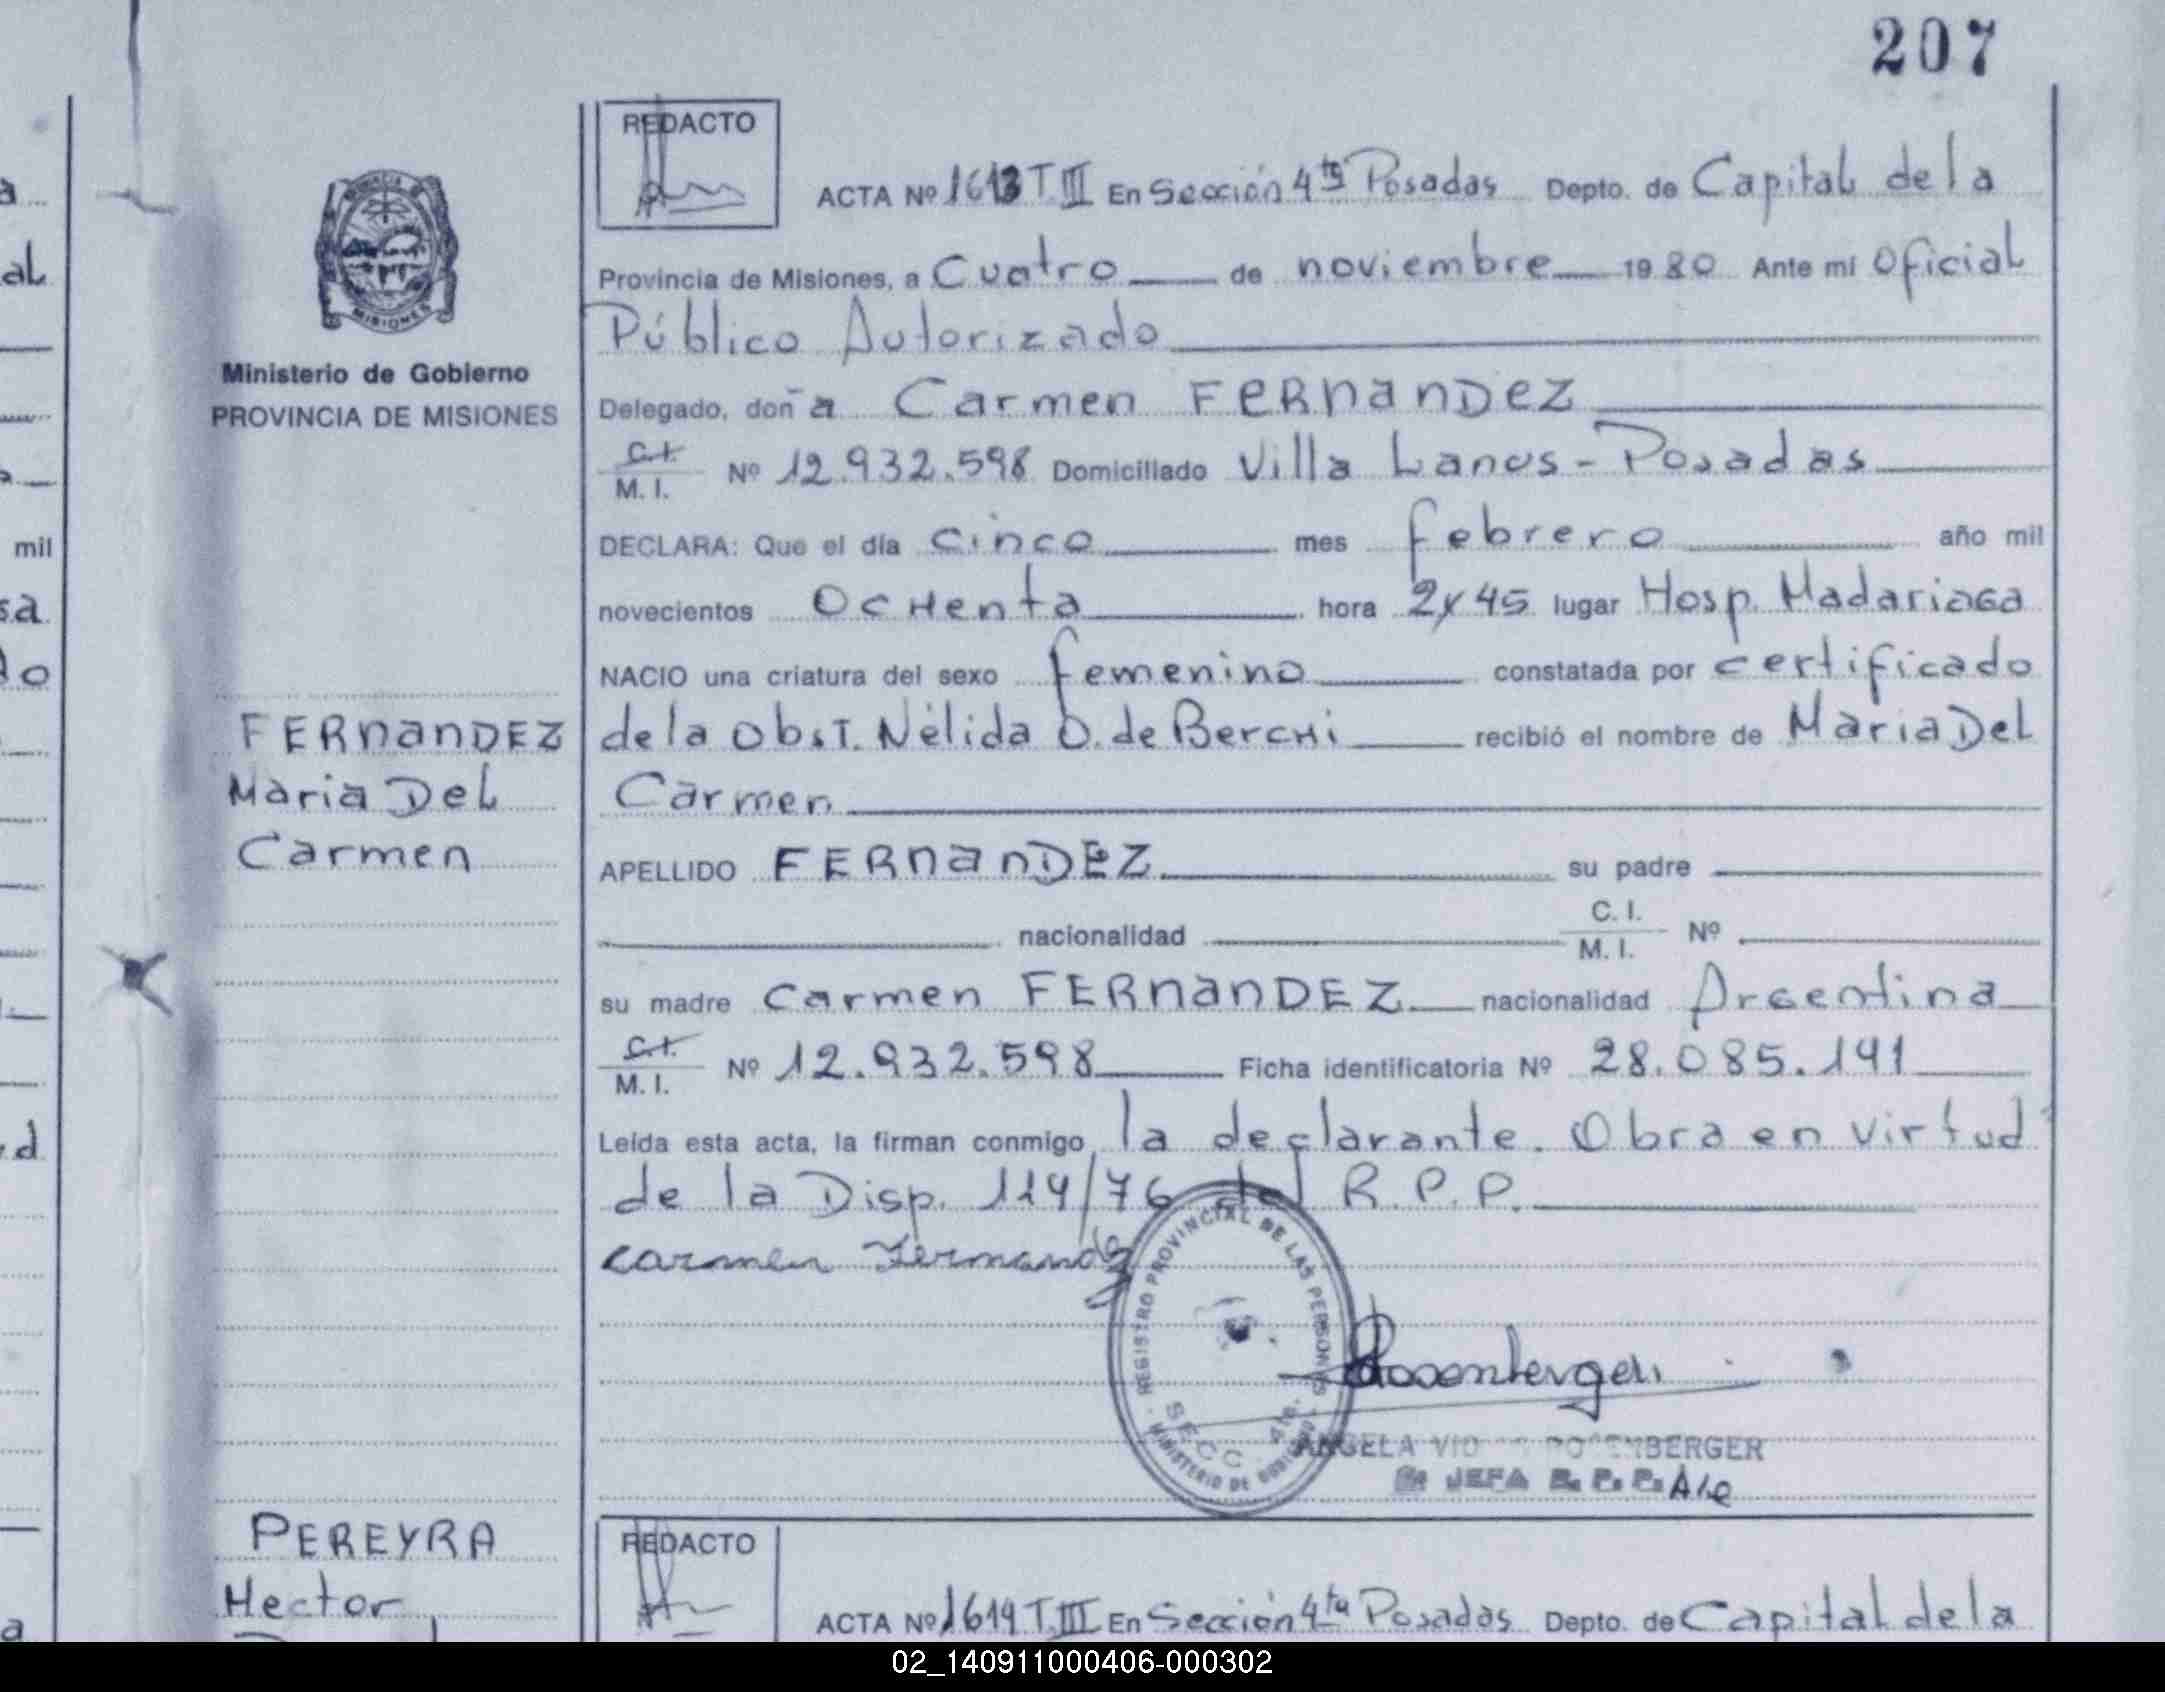 207
REDACTO
ACTA Nº 1613 T. III En Sección 4ta Posadas Depto. de Capital de la
Provincia de Misiones, a Cuatro de noviembre 1980 Ante mi Oficial
Público Autorizado
Ministerio de Gobierno
PROVINCIA DE MISIONES
Delegado, doña Carmen FERnanDEZ
C.I.
M. I. Nº 12.932.598 Domiciliado Villa Lanus - Posadas
DECLARA: Que el día cinco mes febrero año mil
novecientos OcHenta hora 2y45 lugar Hosp. Madariaga
NACIO una criatura del sexo femenino constatada por certificado
de la Obst. Nélida O. de Berchi recibió el nombre de Maria Del
Carmen
FERnanDEZ
Maria Del
Carmen
APELLIDO FERnanDEZ su padre
nacionalidad C. I.
M. I. Nº
su madre Carmen FERnanDEZ nacionalidad Argentina
C.I.
M. I. Nº 12.932.598 Ficha identificatoria Nº 28.085.191
Leída esta acta, la firman conmigo la declarante. Obra en virtud
de la Disp. 114/76 del R.P.P.
carmen Fernandez
REGISTRO PROVINCIAL DE LAS PERSONAS
SECC. 4ta.
MINISTERIO DE GOBIERNO
Rosenberger
ANGELA ROSENBERGER
JEFA R. P. P. A/c
PEREYRA
Hector
REDACTO
ACTA Nº 1614 T. III En Sección 4ta Posadas Depto. de Capital de la
02_140911000406-000302